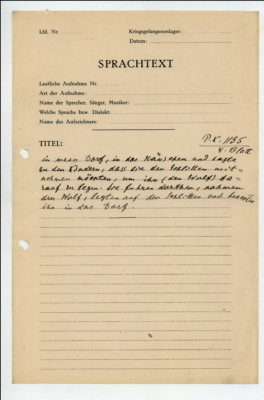 Lfd. Nr
Kriegsgefangenenlager:
Datum:
SPRACHTEXT
Lautliche Aufnahme Nr.
Art der Aufnahme:
Name der Sprecher, Sänger, Musiker:
Welche Sprache bzw. Dialekt:
Name des Aufzeichners:
P.K. 1185
TITEL:
in mein Dorf, in das Häuschen und sagte
zu den Kindern, dass sie den Schlitten mit-
nehmen möchten, um ihn (den Wolf) da-
rauf zu legen. Sie fuhren dorthin, nahmen
den Wolf, legten auf den Schlitten und
ihn in das Dorf.